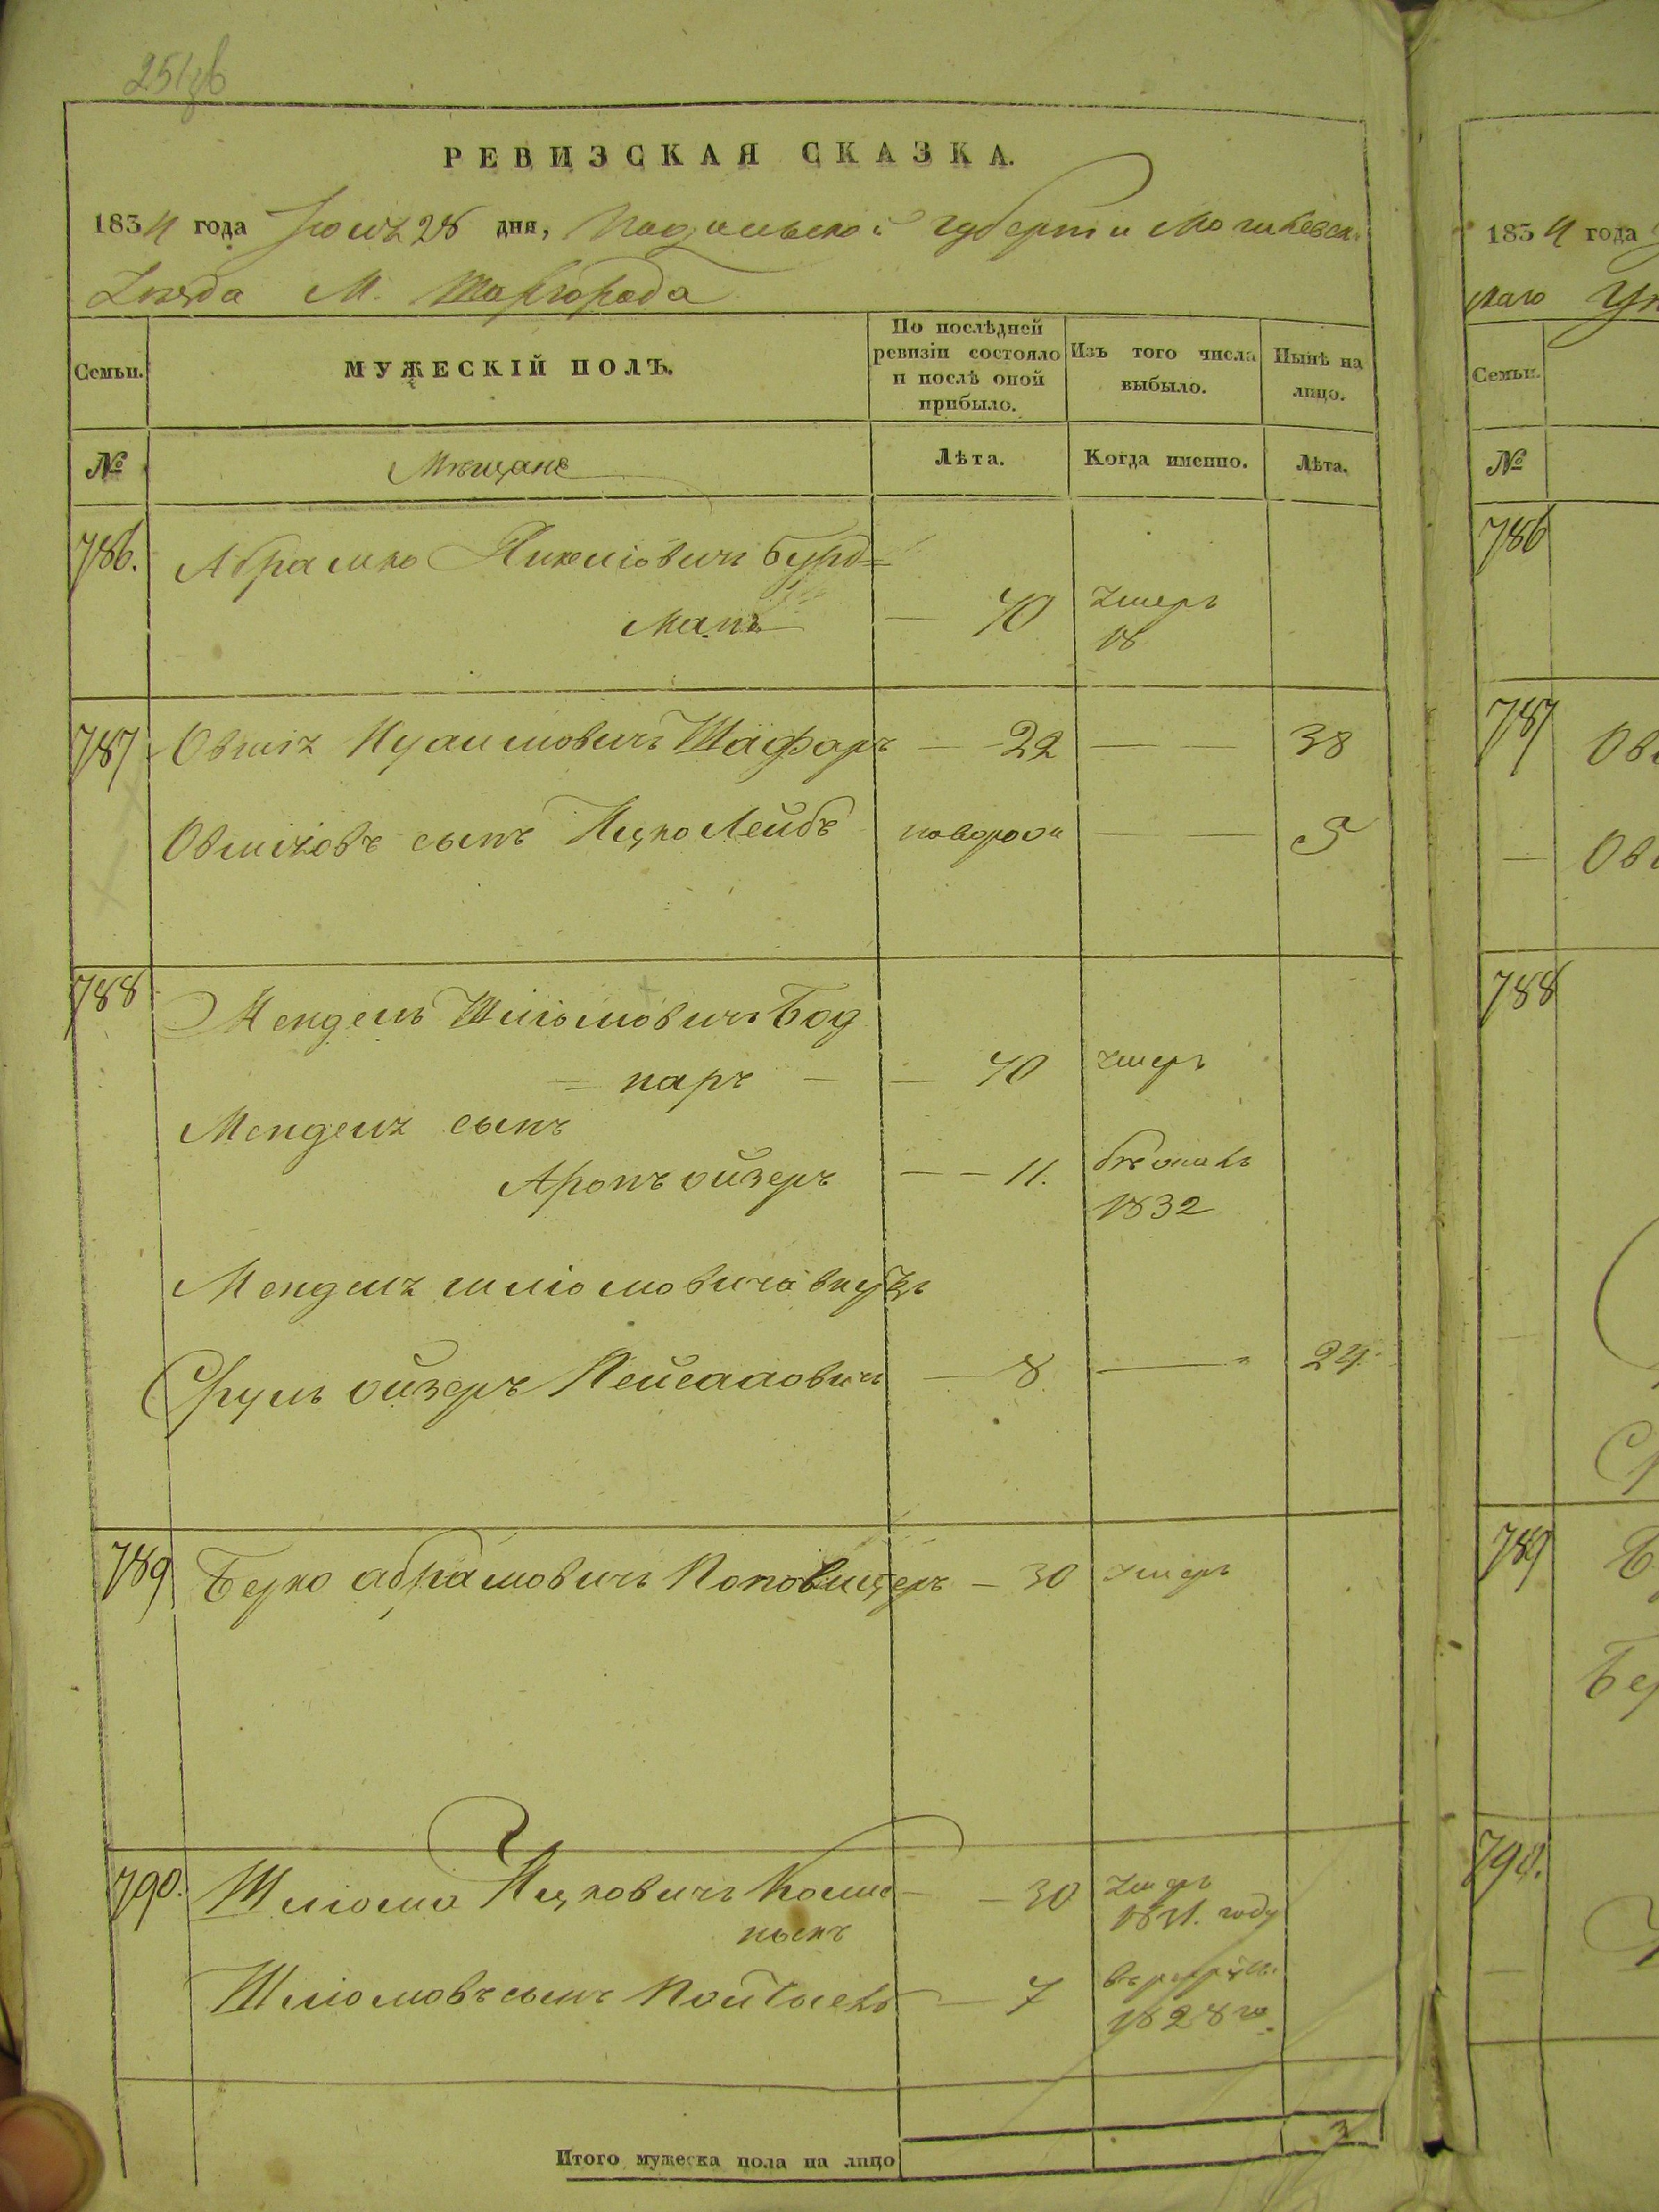 РЕВИЗСКАЯ СКАЗКА.
1834 года Июня 28 дня, Подольской губерніи Могилевск.
Уезда М. Шаргорода
Семьи.
МУЖЕСКІЙ ПОЛЪ.
По послѣдней
ревизіи состояло
и послѣ оной
прибыло.
Изъ того числа
выбыло.
Нынѣ на
лицо.
№
Мещане
Лѣта.
Когда именно.
Лѣта.
786.
Абрамко Бурд=
манъ — 40 умеръ
18
787 Овшія Шафаръ — 22 — — 38
Овшіювъ сынъ Ицко Лейбъ новорож — — 5
788
Мендель Шліомовичъ Бод
= наръ — — 40 умеръ
Менделя сынъ
Аронъ ойзеръ — — 11.
1832
Менделя шліомовича внукъ
Срулъ ойзеръ Пейсаховичъ — 8 — 24.
789 Берко абрамовичъ — 30 умеръ
790. Шліома Ицковичъ — — 30 умеръ
1831. году
Шліомовъ сынъ — 7
1828 го.
Итого мужеска пола на лицо
3
1834 года
скаго
Семьи.
№
786
787
Ов
— Ов
788
789
Бе
790.